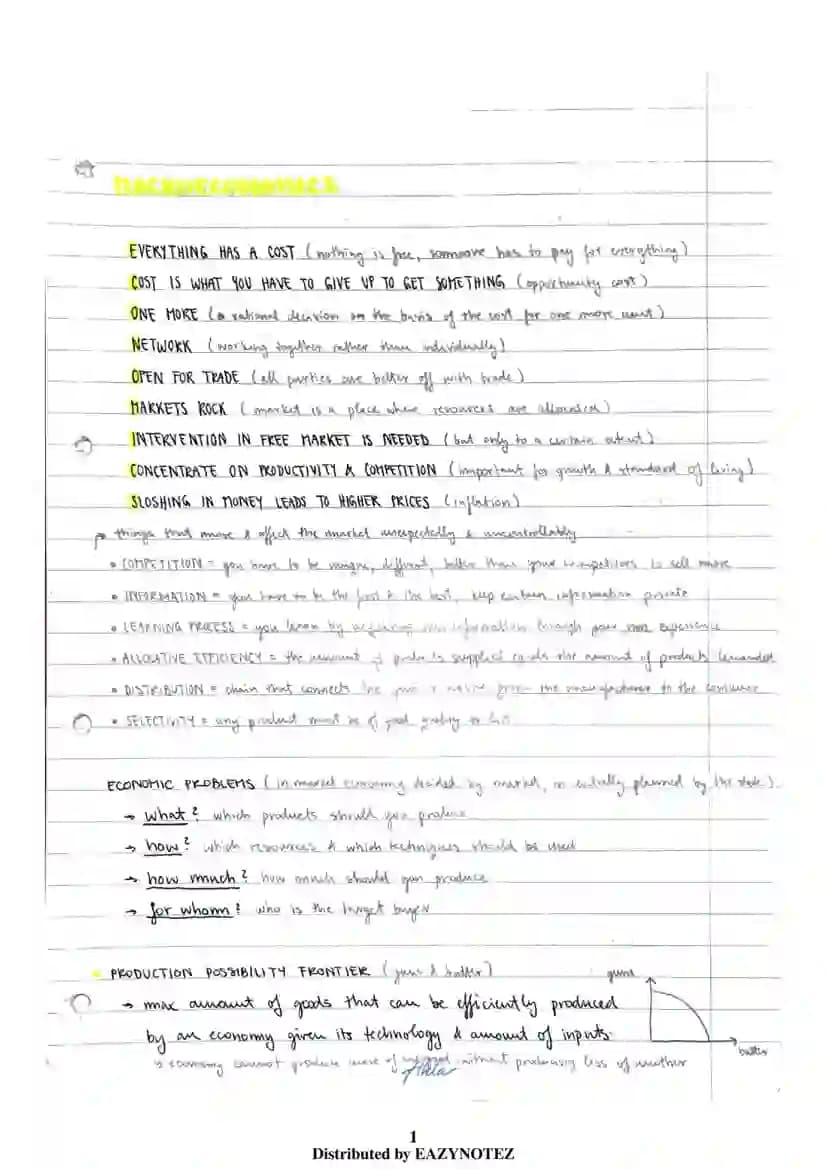 MACROECONOMICS
EVERYTHING HAS A COST (nothing is free, someone has to pay for everything)
COST IS WHAT YOU HAVE TO GIVE UP TO GET SOMETHING (opportunity cost)
ONE MORE (a rational decision on the basis of the cost for one more unit)
NETWORK (working together rather than individually)
OPEN FOR TRADE (all parties are better off with trade)
MARKETS ROCK (market is a place where resources are allocated)
INTERVENTION IN FREE MARKET IS NEEDED (but only to a certain extent)
CONCENTRATE ON PRODUCTIVITY & COMPETITION (important for growth & standard of living)
SLOSHING IN MONEY LEADS TO HIGHER PRICES (inflation)
things that move & affect the market unexpectedly & uncontrollably
• COMPETITION = you have to be unique, different, better than your competitors to sell more
• INFORMATION = you have to be the first & the best, keep certain information private
• LEARNING PROCESS = you learn by acquiring new information through your own experience
• ALLOCATIVE EFFICIENCY = the amount of products supplied equals the amount of products demanded
• DISTRIBUTION = chain that connects the from the manufacturer to the consumer
• SELECTIVITY = any product must be of good quality to
ECONOMIC PROBLEMS (in market economy decided by market, or entirely planned by the state)
→ what? which products should you produce
→ how? which resources & which techniques should be used
→ how much? how much should you produce
→ for whom? who is the target buyer
• PRODUCTION POSSIBILITY FRONTIER (guns & butter)
guns
→ max amount of goods that can be efficiently produced
by an economy given its technology & amount of inputs.
butter
economy cannot produce more of without producing less of another
1
Distributed by EAZYNOTEZ